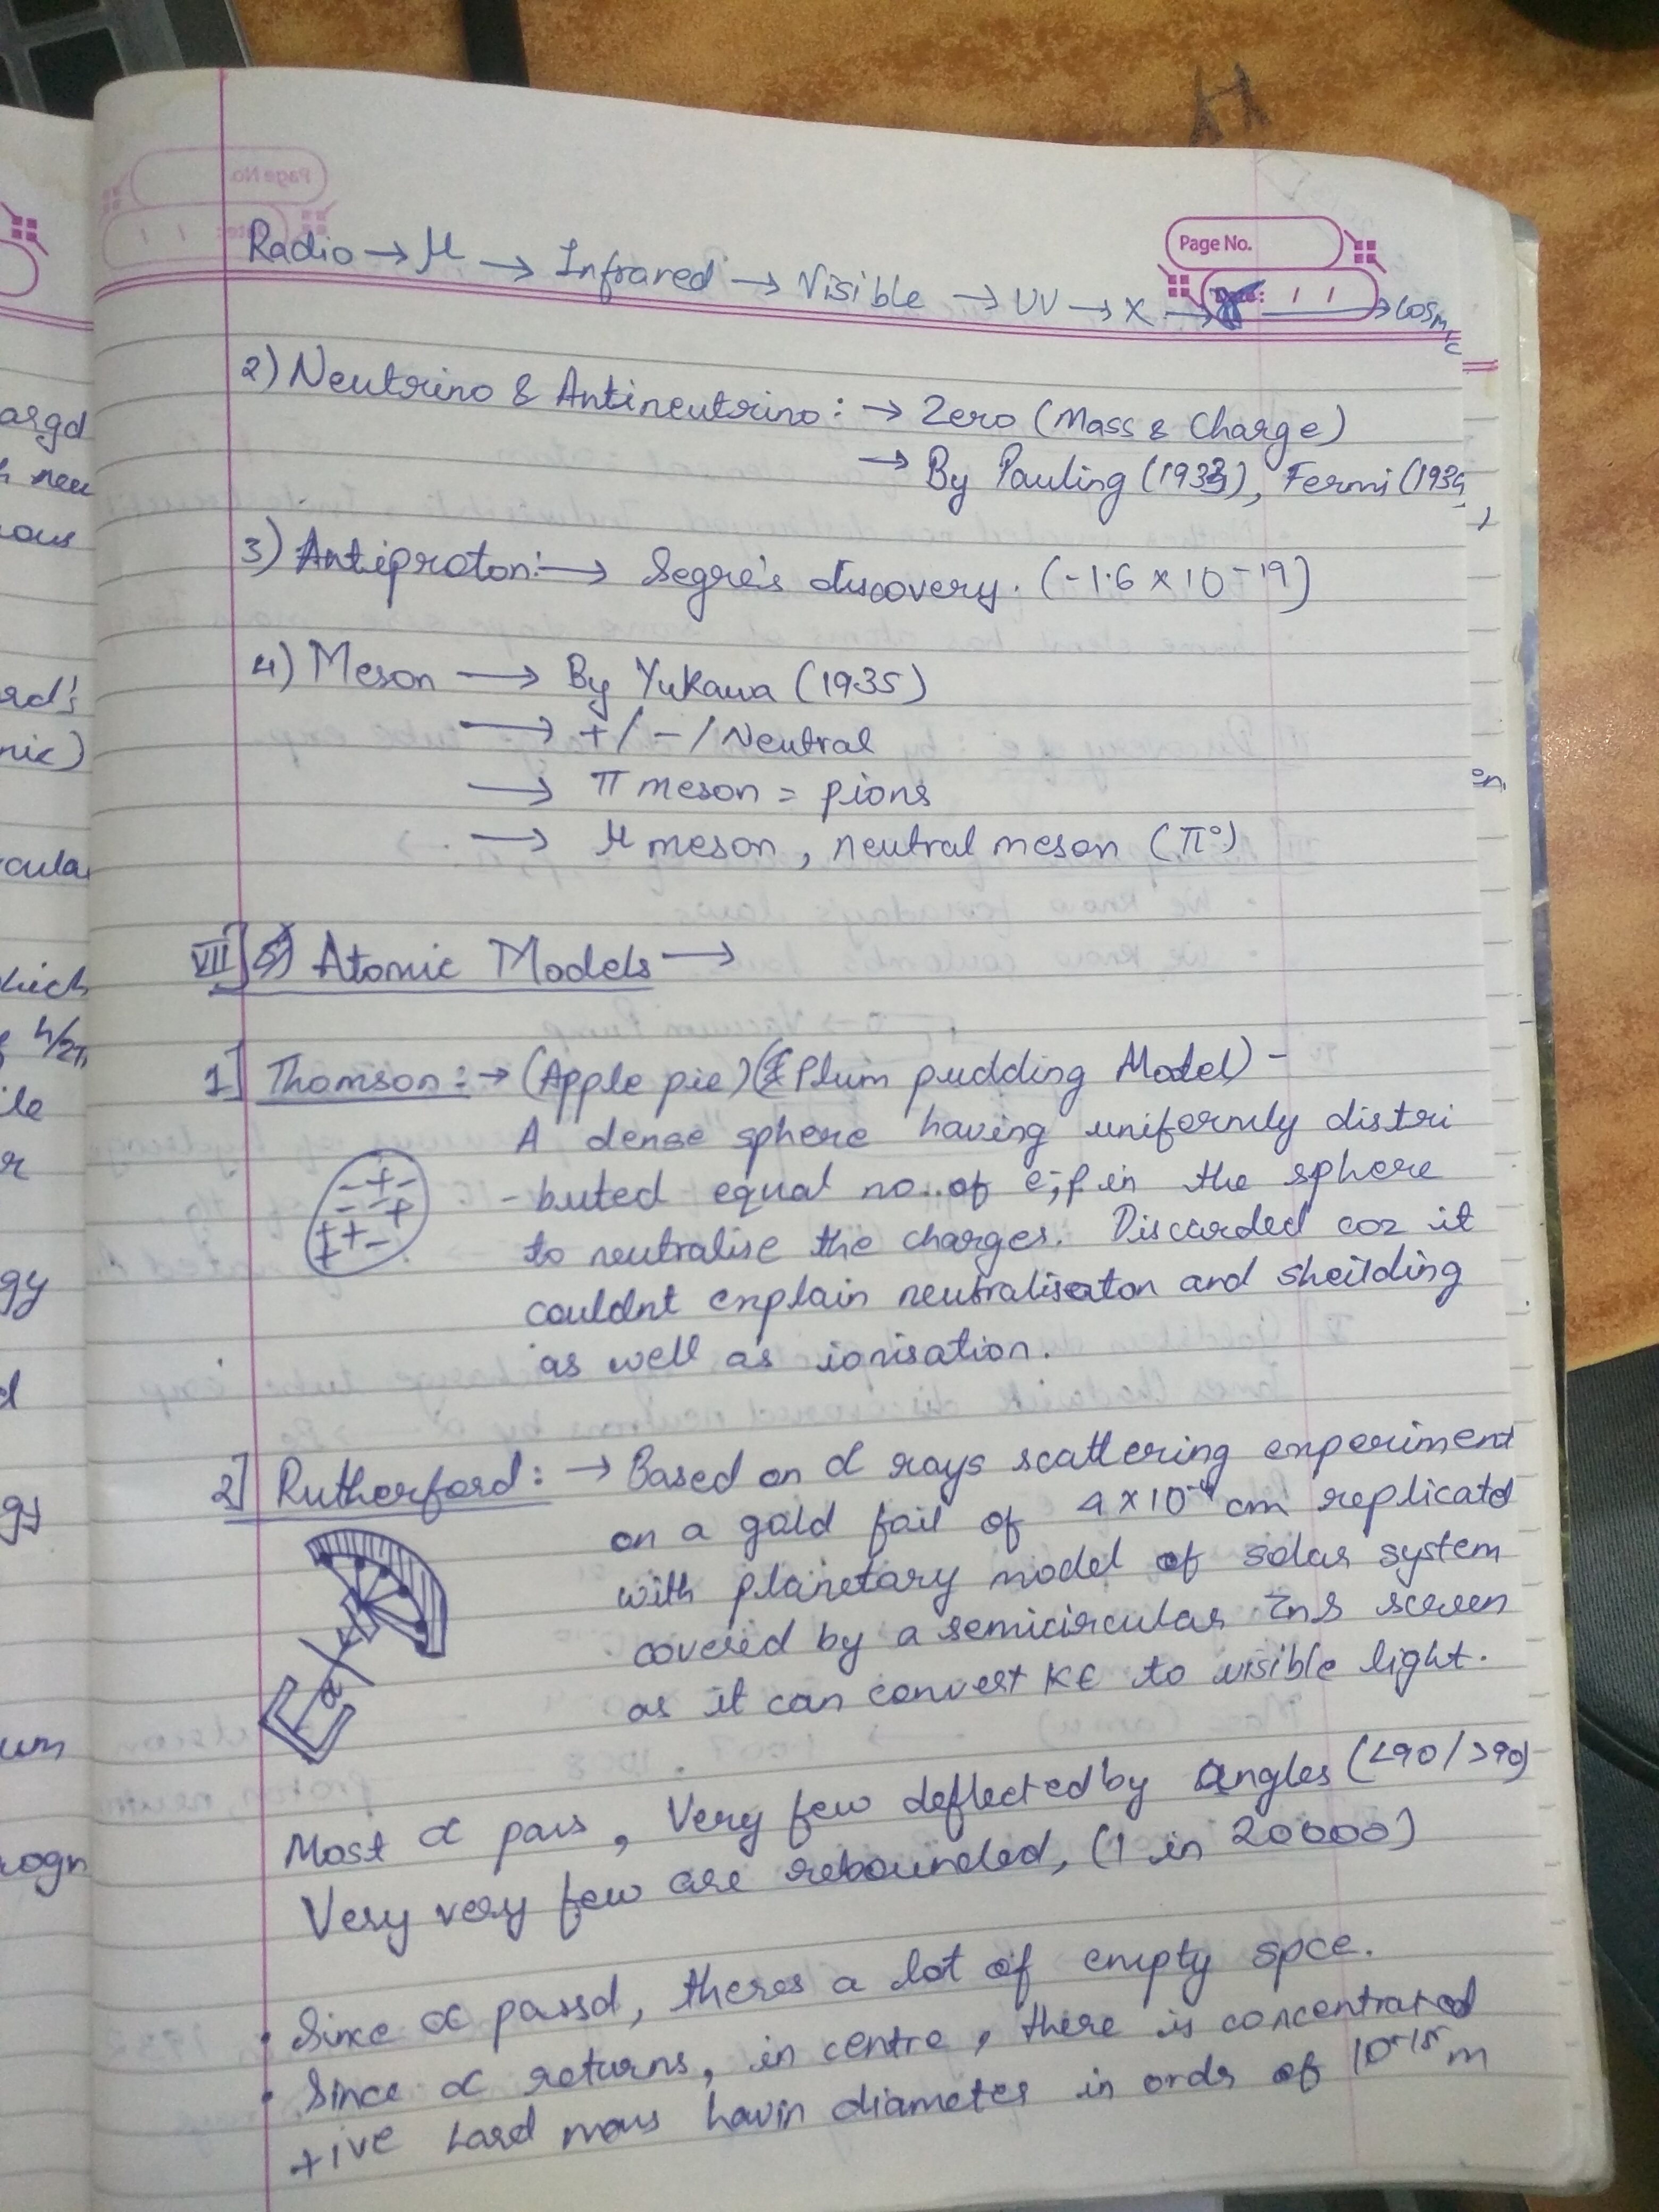 Page No.
Radio → μ → Infrared → Visible → UV → X → γ → Cosmic
Date: / /
2) Neutrino & Antineutrino: → Zero (Mass & Charge)
→ By Pauling (1933), Fermi (1934)
3) Antiproton: → Segre's discovery. (-1.6 × 10-19)
4) Meson → By Yukawa (1935)
→ +/-/Neutral
→ π meson = pions
→ μ meson, neutral meson (π°)
VII] Atomic Models →
1] Thomson: → (Apple pie) (Plum pudding Model) -
A dense sphere having uniformly distri
-buted equal no. of e-, p in the sphere
to neutralise the charges. Discarded coz it
couldnt explain neutralisaton and sheilding
as well as ionisation.
- + -
- - +
+ + -
+
2] Rutherford: → Based on α rays scattering experiment
on a gold foil of 4 × 10-4 cm replicatd
with planetary model of solar system
covered by a semicircular ZnS screen
as it can convert KE to visible light.
α
Most α pass, Very few deflected by angles (<90/>90)
Very very few are rebounded, (1 in 20000)
• Since α passd, theres a lot of empty spce.
• Since α returns, in centre, there is concentrated
+ive hard mass havin diameter in ordr of 10-15 m
argd
h neu
ous
rd's
nic)
cula
hich
h/2π
ile
r
gy
d
gy
um
ogn